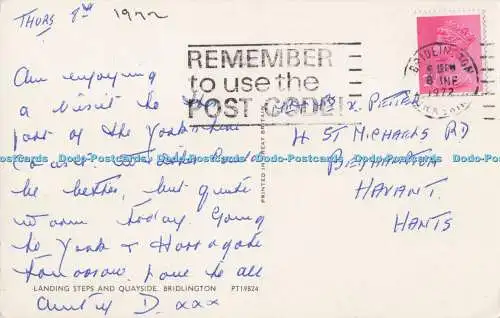 THURS 8th 1972
REMEMBER
to use the
POST CODE!
BRIDLINGTON
8 JNE
1972
Am enjoying
a visit to
part of the Yorkshire
Coast.
be better, but quite
warm today. Going
to York & Harrogate
tomorrow. Love to all
Aunty D. xxx
& PETER
4 ST MICHAELS RD
BEDHAMPTON
HAVANT.
HANTS
PRINTED IN GREAT BRITAIN
LANDING STEPS AND QUAYSIDE, BRIDLINGTON PT19824
Dodo-Postcards Dodo-Postcards Dodo-Postcards Dodo-Postcards Dodo-Postcards Dodo-Postcards Dodo-Postcards